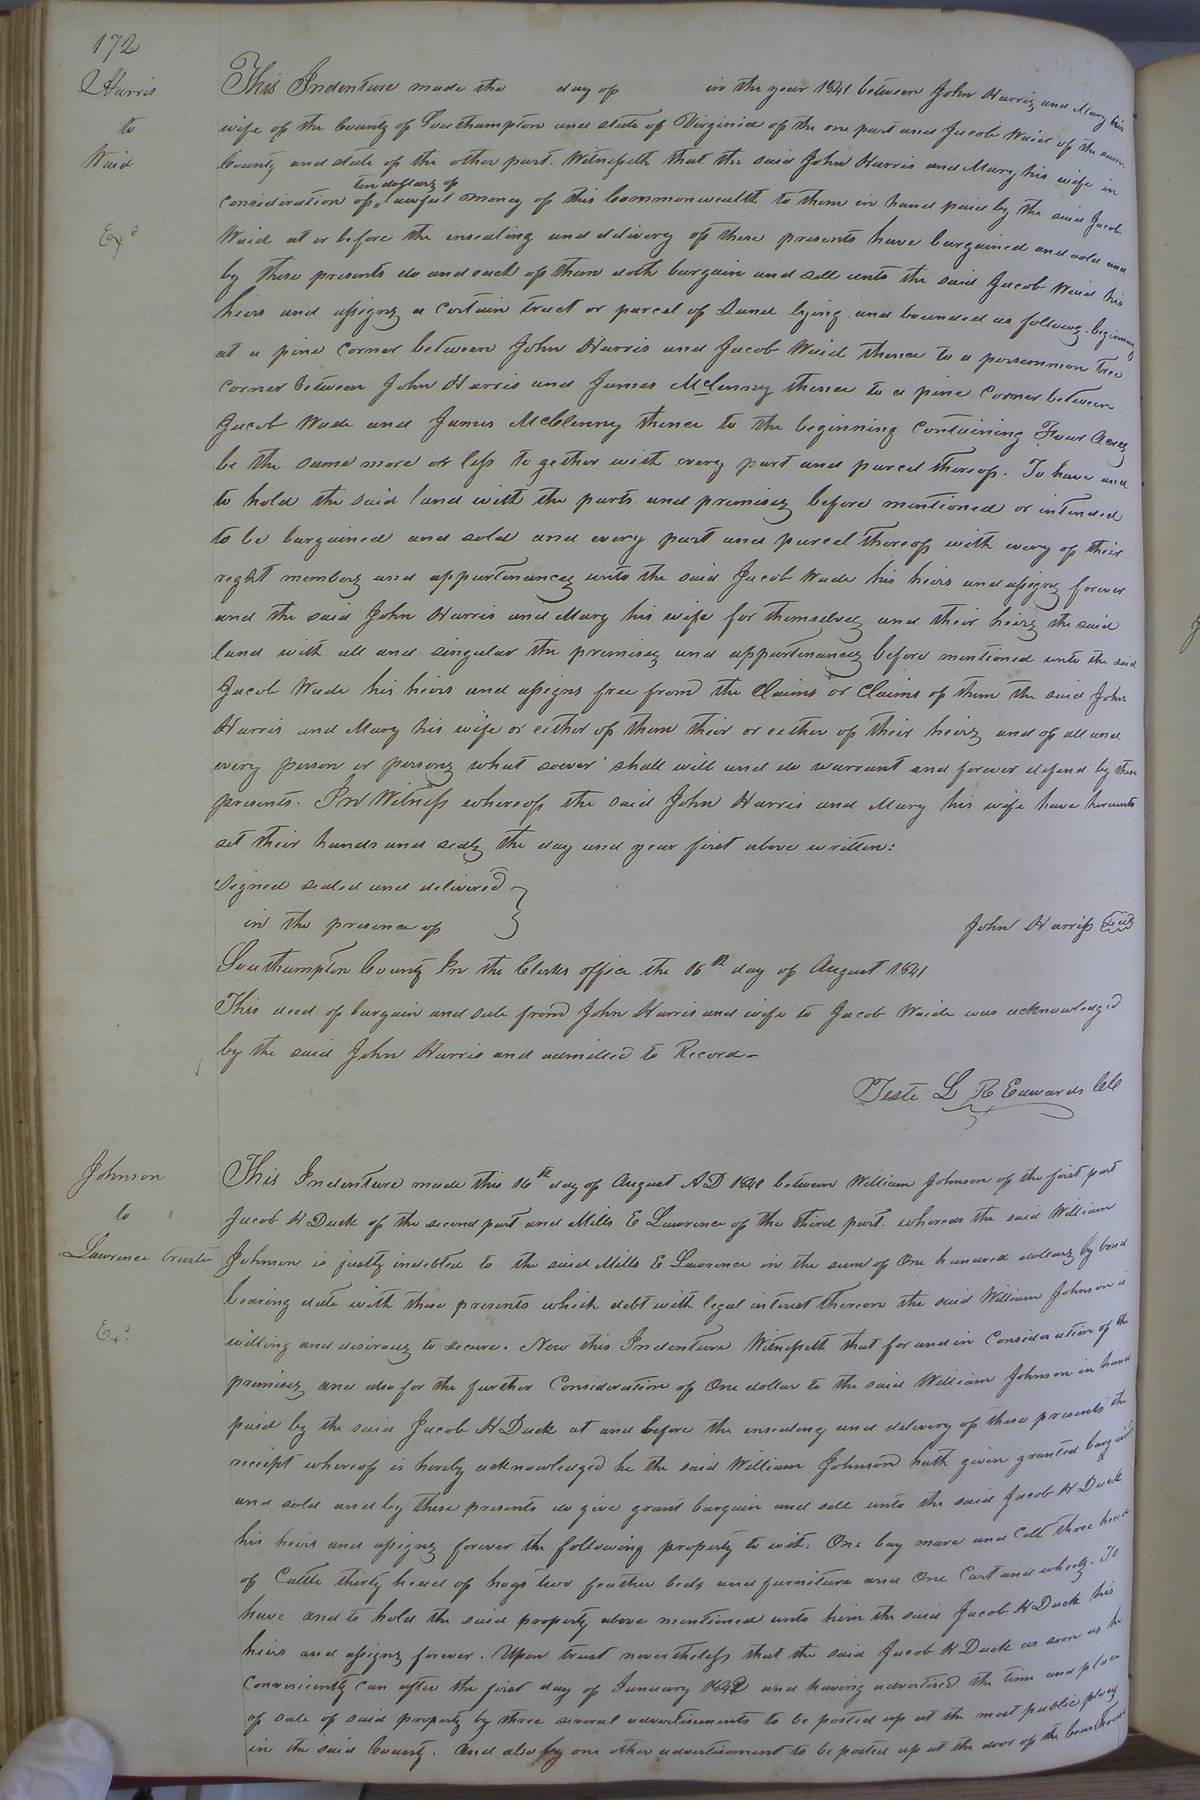 172
Harris
to
Waid
Exd
This Indenture made the day of in the year 1841 between John Harris and Mary his
wife of the County of Southampton and state of Virginia of the one part and Jacob Waid of the same
County and state of the other part. Witnesseth that the said John Harris and Mary his wife in
consideration of ten dollars of lawful money of this Commonwealth to them in hand paid by the said Jacob
Waid at or before the ensealing and delivery of these presents have bargained and sold and
by these presents do and each of them doth bargain and sell unto the said Jacob Waid his
heirs and assigns a certain tract or parcel of Land lying and bounded as follows. beginning
at a pine corner between John Harris and Jacob Waid thence to a persemmon tree
corner between John Harris and James McLenny thence to a pine corner between
Jacob Wade and James McClenny thence to the beginning containing Four Acres
be the same more or less to gether with every part and parcel thereof. To have and
to hold the said land with the parts and premises before mentioned or intended
to be bargained and sold and every part and parcel thereof with every of their
right members and appurtenances unto the said Jacob Wade his heirs and assigns forever
and the said John Harris and Mary his wife for themselves and their heirs the said
land with all and singular the premises and appurtenances before mentioned unto the said
Jacob Wade his heirs and assigns free from the Claims or Claims of them the said John
Harris and Mary his wife or either of them their or either of their heirs and of all and
every person or persons what soever shall will and do warrant and forever defend by these
presents. In Witness whereof the said John Harris and Mary his wife have hereunto
set their hands and seals the day and year first above written:
Signed sealed and delivered
in the presence of
John Harriss Seal
Southampton County In the Clerks office the 16th day of August 1841
This deed of bargain and sale from John Harris and wife to Jacob Waide was acknowledged
by the said John Harris and admitted to Record -
Teste L R Edwards CC
Johnson
to
Lawrence trustee
Exd
This Indenture made this 16th day of August A D 1841 between William Johnson of the first part
Jacob H Duck of the second part and Mills E Lawrence of the third part. whereas the said William
Johnson is justly indebted to the said Mills E Lawrence in the sum of One hundred dollars by bond
bearing date with these presents which debt with legal interest thereon the said William Johnson is
willing and desirous to secure. Now this Indenture Witnesseth that for and in Consideration of the
premises and also for the further Consideration of One dollar to the said William Johnson in hand
paid by the said Jacob H Duck at and before the ensealing and delivery of these presents the
receipt whereof is hereby acknowledged he the said William Johnson hath given granted bargained
and sold and by these presents do give grant bargain and sell unto the said Jacob H Duck
his heirs and assigns forever the following property to wit: One bay mare and Colt three head
of Cattle thirty head of hogs two feather beds and furniture and One Cart and wheels. To
have and to hold the said property above mentioned unto him the said Jacob H Duck his
heirs and assigns forever. Upon trust nevertheless that the said Jacob H Duck as soon as he
conveniently can after the first day of January 1842 and having advertised the time and place
of sale of said property by three several advertisements to be posted up at the most public places
in the said County. And also by one other advertisement to be posted up at the door of the